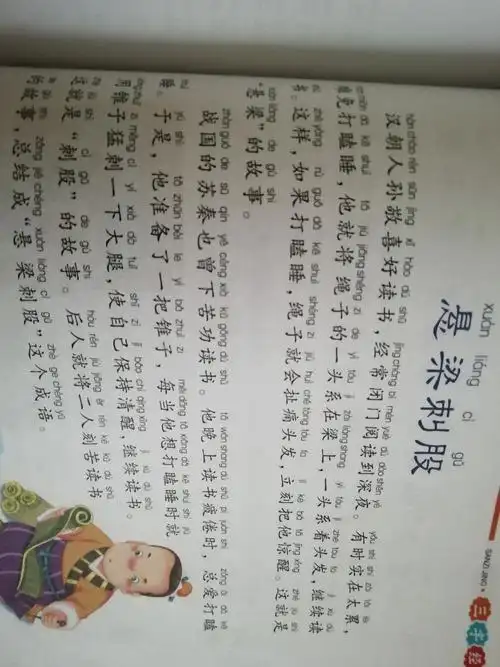 SANZI JING 三字经
xuán liáng cì gǔ
悬梁刺股
hàn cháo rén sūn jìng xǐ hào dú shū jīng cháng bì mén yuè dú dào shēn yè yǒu shí shí zài tài lèi
汉朝人孙敬喜好读书，经常闭门阅读到深夜。有时实在太累，
miǎn dǎ kē shuì tā jiù jiāng shéng zi de yì tóu jì zài liáng shang yì tóu jì zhe tóu fa jì xù dú
难免打瞌睡，他就将绳子的一头系在梁上，一头系着头发，继续读
shū zhè yàng rú guǒ dǎ kē shuì shéng zi jiù huì chě tòng tóu fa lì kè bǎ tā jīng xǐng zhè jiù shì
书。这样，如果打瞌睡，绳子就会扯痛头发，立刻把他惊醒。这就是
xuán liáng de gù shi
“悬梁”的故事。
zhàn guó de sū qín yě céng xià kǔ gōng dú shū tā wǎn shang dú shū pí juàn shí zǒng ài dǎ kē
战国的苏秦也曾下苦功读书。他晚上读书疲倦时，总爱打瞌
shuì yú shì tā zhǔn bèi le yì bǎ zhuī zi měi dāng tā xiǎng dǎ kē shuì shí jiù
睡。于是，他准备了一把锥子，每当他想打瞌睡时就
yòng zhuī zi měng cì yí xià dà tuǐ shǐ zì jǐ bǎo chí qīng xǐng jì xù dú shū
用锥子猛刺一下大腿，使自己保持清醒，继续读书。
zhè jiù shì cì gǔ de gù shi hòu rén jiù jiāng èr rén kè kǔ dú shū
这就是“刺股”的故事。后人就将二人刻苦读书
de gù shi zǒng jié chéng xuán liáng cì gǔ zhè ge chéng yǔ
的故事，总结成“悬梁刺股”这个成语。